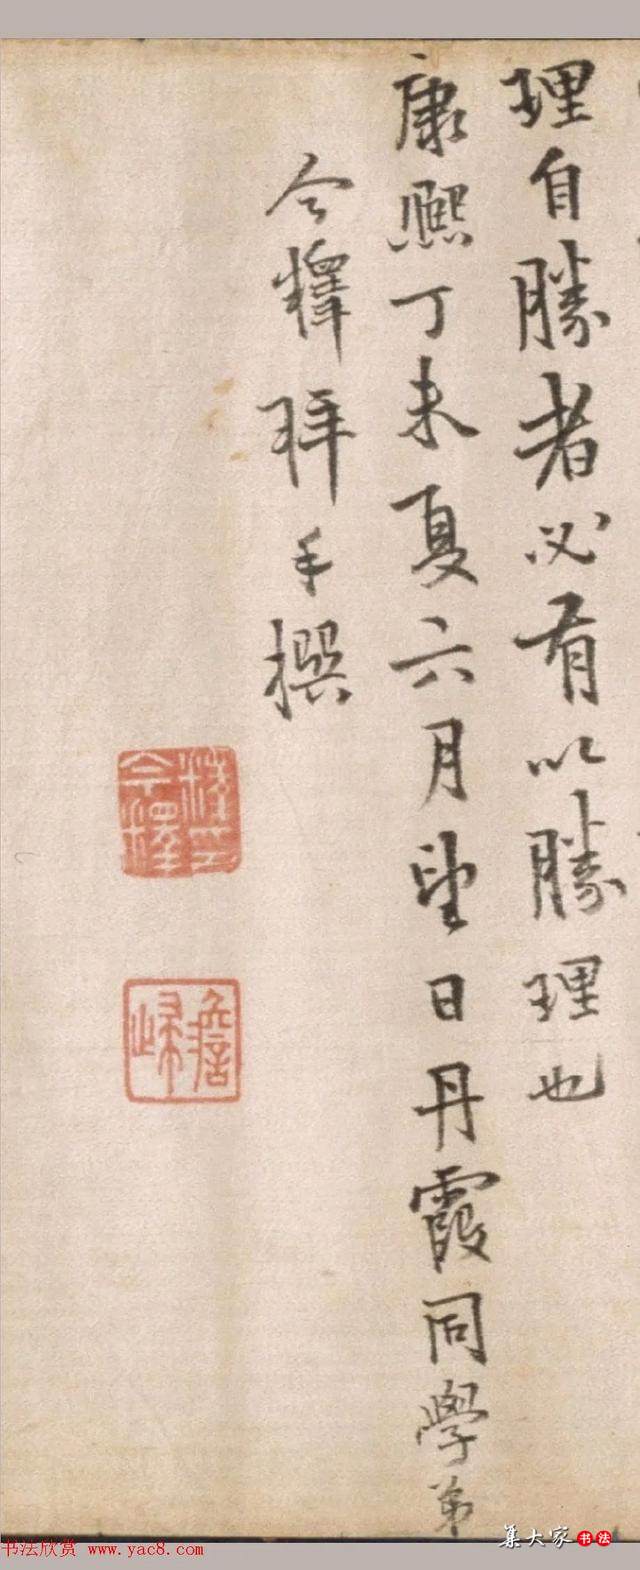 理自勝者必有以勝理也
康熙丁未夏六月望日丹霞同學弟
今釋拜手撰
今釋
澹歸
书法欣赏 www.yac8.com
集大家 书法